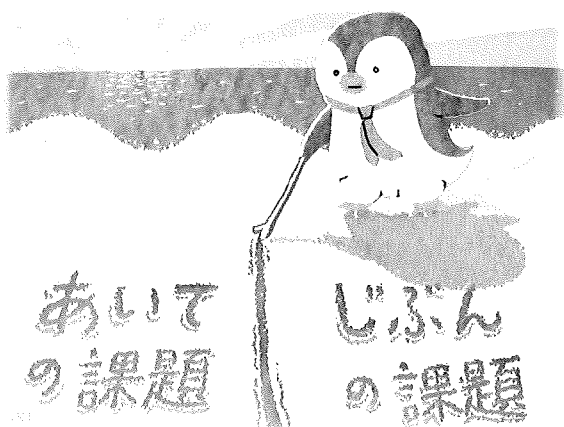 あいて
の課題
じぶん
の課題